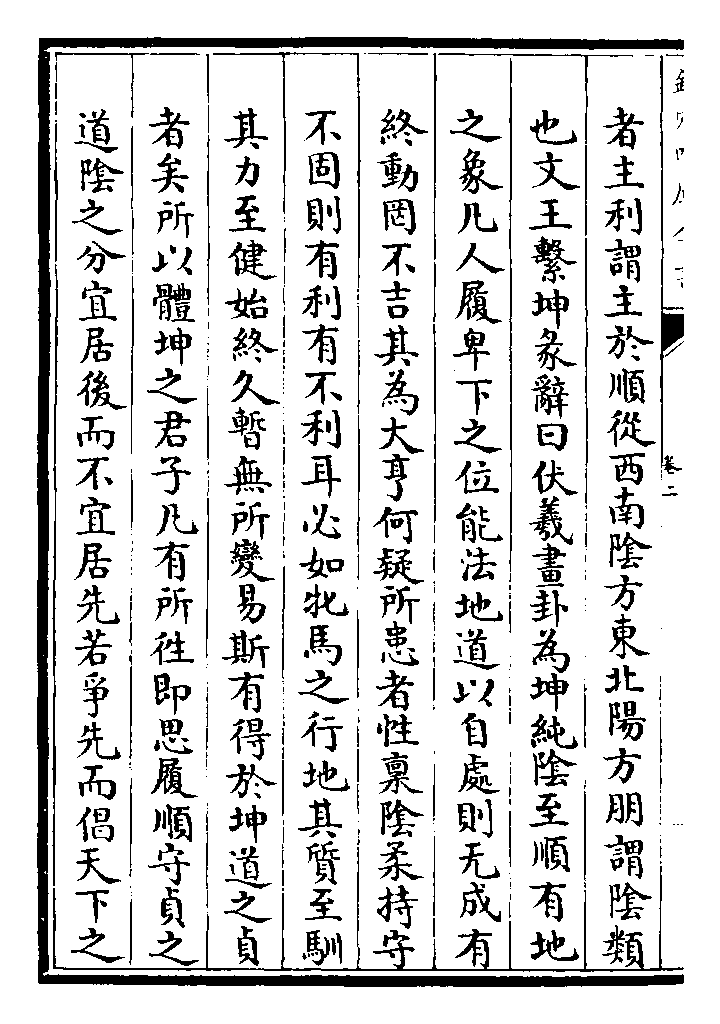 卷二
者主利謂主於順從西南陰方東北陽方朋謂陰類
也文王繫坤彖辭曰伏羲畫卦為坤純陰至順有地
之象凡人履卑下之位能法地道以自處則无成有
終動罔不吉其為大亨何疑所患者性稟陰柔持守
不固則有利有不利耳必如牝馬之行地其質至馴
其力至健始終久暫無所變易斯有得於坤道之貞
者矣所以體坤之君子凡有所往即思履順守貞之
道陰之分宜居後而不宜居先若爭先而倡天下之